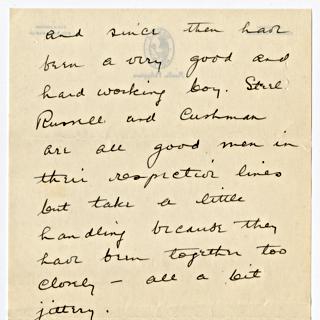 and since then have
been a very good and
hard working boy. Steel
Russell and Cushman
are all good men in
their respective lines
but take a little
handling because they
have been together too
closely – all a bit
jittery.